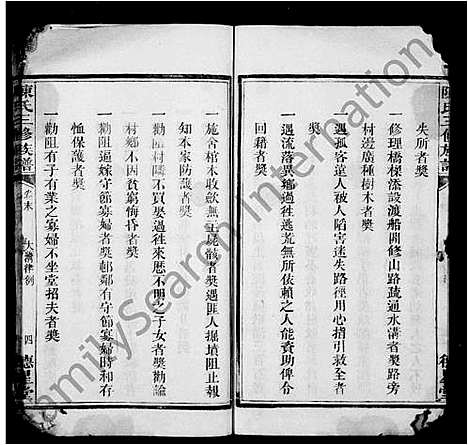 失所者獎
一修理橋樑添設渡船開修山路疏通水溝者獎路旁
村邊廣種樹木者獎
一遇孤客遠人被人陷害迷失路徑用心指引救全者
獎
一遇流落異鄉過往逃荒無所依賴之人能資助俾令
回籍者獎
一施舍棺木收歛無主屍骸者獎遇匪人掘墳阻止報
知本家防護者獎
一勸匪村隣不買娶過往來歷不明之子女者獎勸諭
村鄉不因貧窮悔昏者獎
一勸阻逼嫁守節寡婦者獎郵鄰有守節寡婦時和有
恤保護者獎
一勸阻有子有業之寡婦不坐堂招夫者獎
陳氏三修族譜
卷末
大清律例
四
德星堂
陳氏三修族譜
FamilySearch International